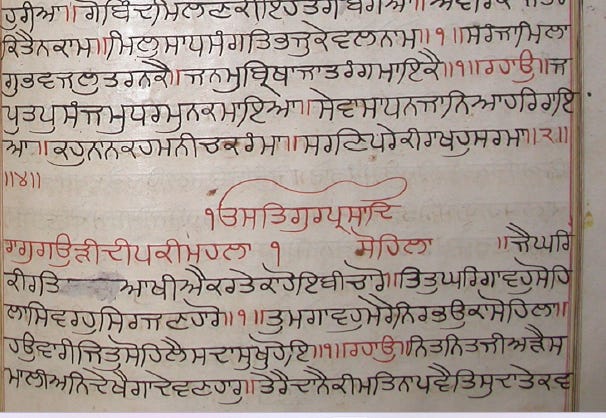 ਹੁਰੀਆ॥ਗੋਬਿੰਦਮਿਲਣਕੀਇਹਤੇਰੀਬਰੀਆ॥
ਕਿਤੈਨਕਾਮ॥ਮਿਲੁਸਾਧਸੰਗਤਿਭਜੁਕੇਵਲਨਾਮ॥੧॥ਸਰੰਜਾਮਿਲਾ
ਗੁਭਵਜਲੁਤਰਨਕੈ॥ਜਨਮੁਬ੍ਰਿਥਾਜਾਤਰੰਗਮਾਇਕੈ॥੧॥ਰਹਾਉ॥ਜ
ਪੁਤਪੁਸੰਜਮੁਧਰਮੁਨਕਮਾਇਆ॥ਸੇਵਾਸਾਧਨਜਾਨਿਆਹਰਿਰਾਇ
ਆ॥ਕਹੁਨਾਨਕਹਮਨੀਚਕਰੰਮਾ॥ਸਰਣਿਪਰੇਕੀਰਾਖਹੁਸਰਮਾ॥੨॥
॥੪॥
ੴਸਤਿਗੁਰਪ੍ਰਸਾਦਿ
ਰਾਗੁਗਉੜੀਦੀਪਕੀਮਹਲਾ ੧ ਸੋਹਿਲਾ ॥ਜੈਘਰਿ
ਕੀਰਤਿ ਆਖੀਐਕਰਤੇਕਾਹੋਇਬੀਚਾਰੋ॥ਤਿਤੁਘਰਿਗਾਵਹੁਸੋਹਿ
ਲਾਸਿਵਰਹੁਸਿਰਜਣਹਾਰੋ॥੧॥ਤੁਮਗਾਵਹੁਮੇਰੇਨਿਰਭਉਕਾਸੋਹਿਲਾ॥
ਹਉਵਾਰੀਜਿਤੁਸੋਹਿਲੈਸਦਾਸੁਖੁਹੋਇ॥੧॥ਰਹਾਉ॥ਨਿਤਨਿਤਜੀਅੜੇਸ
ਮਾਲੀਅਨਿਦੇਖੈਗਾਦੇਵਣਹਾਰੁ॥ਤੇਰੇਦਾਨੈਕੀਮਤਿਨਾਪਵੈਤਿਸੁਦਾਤੇਕਵ